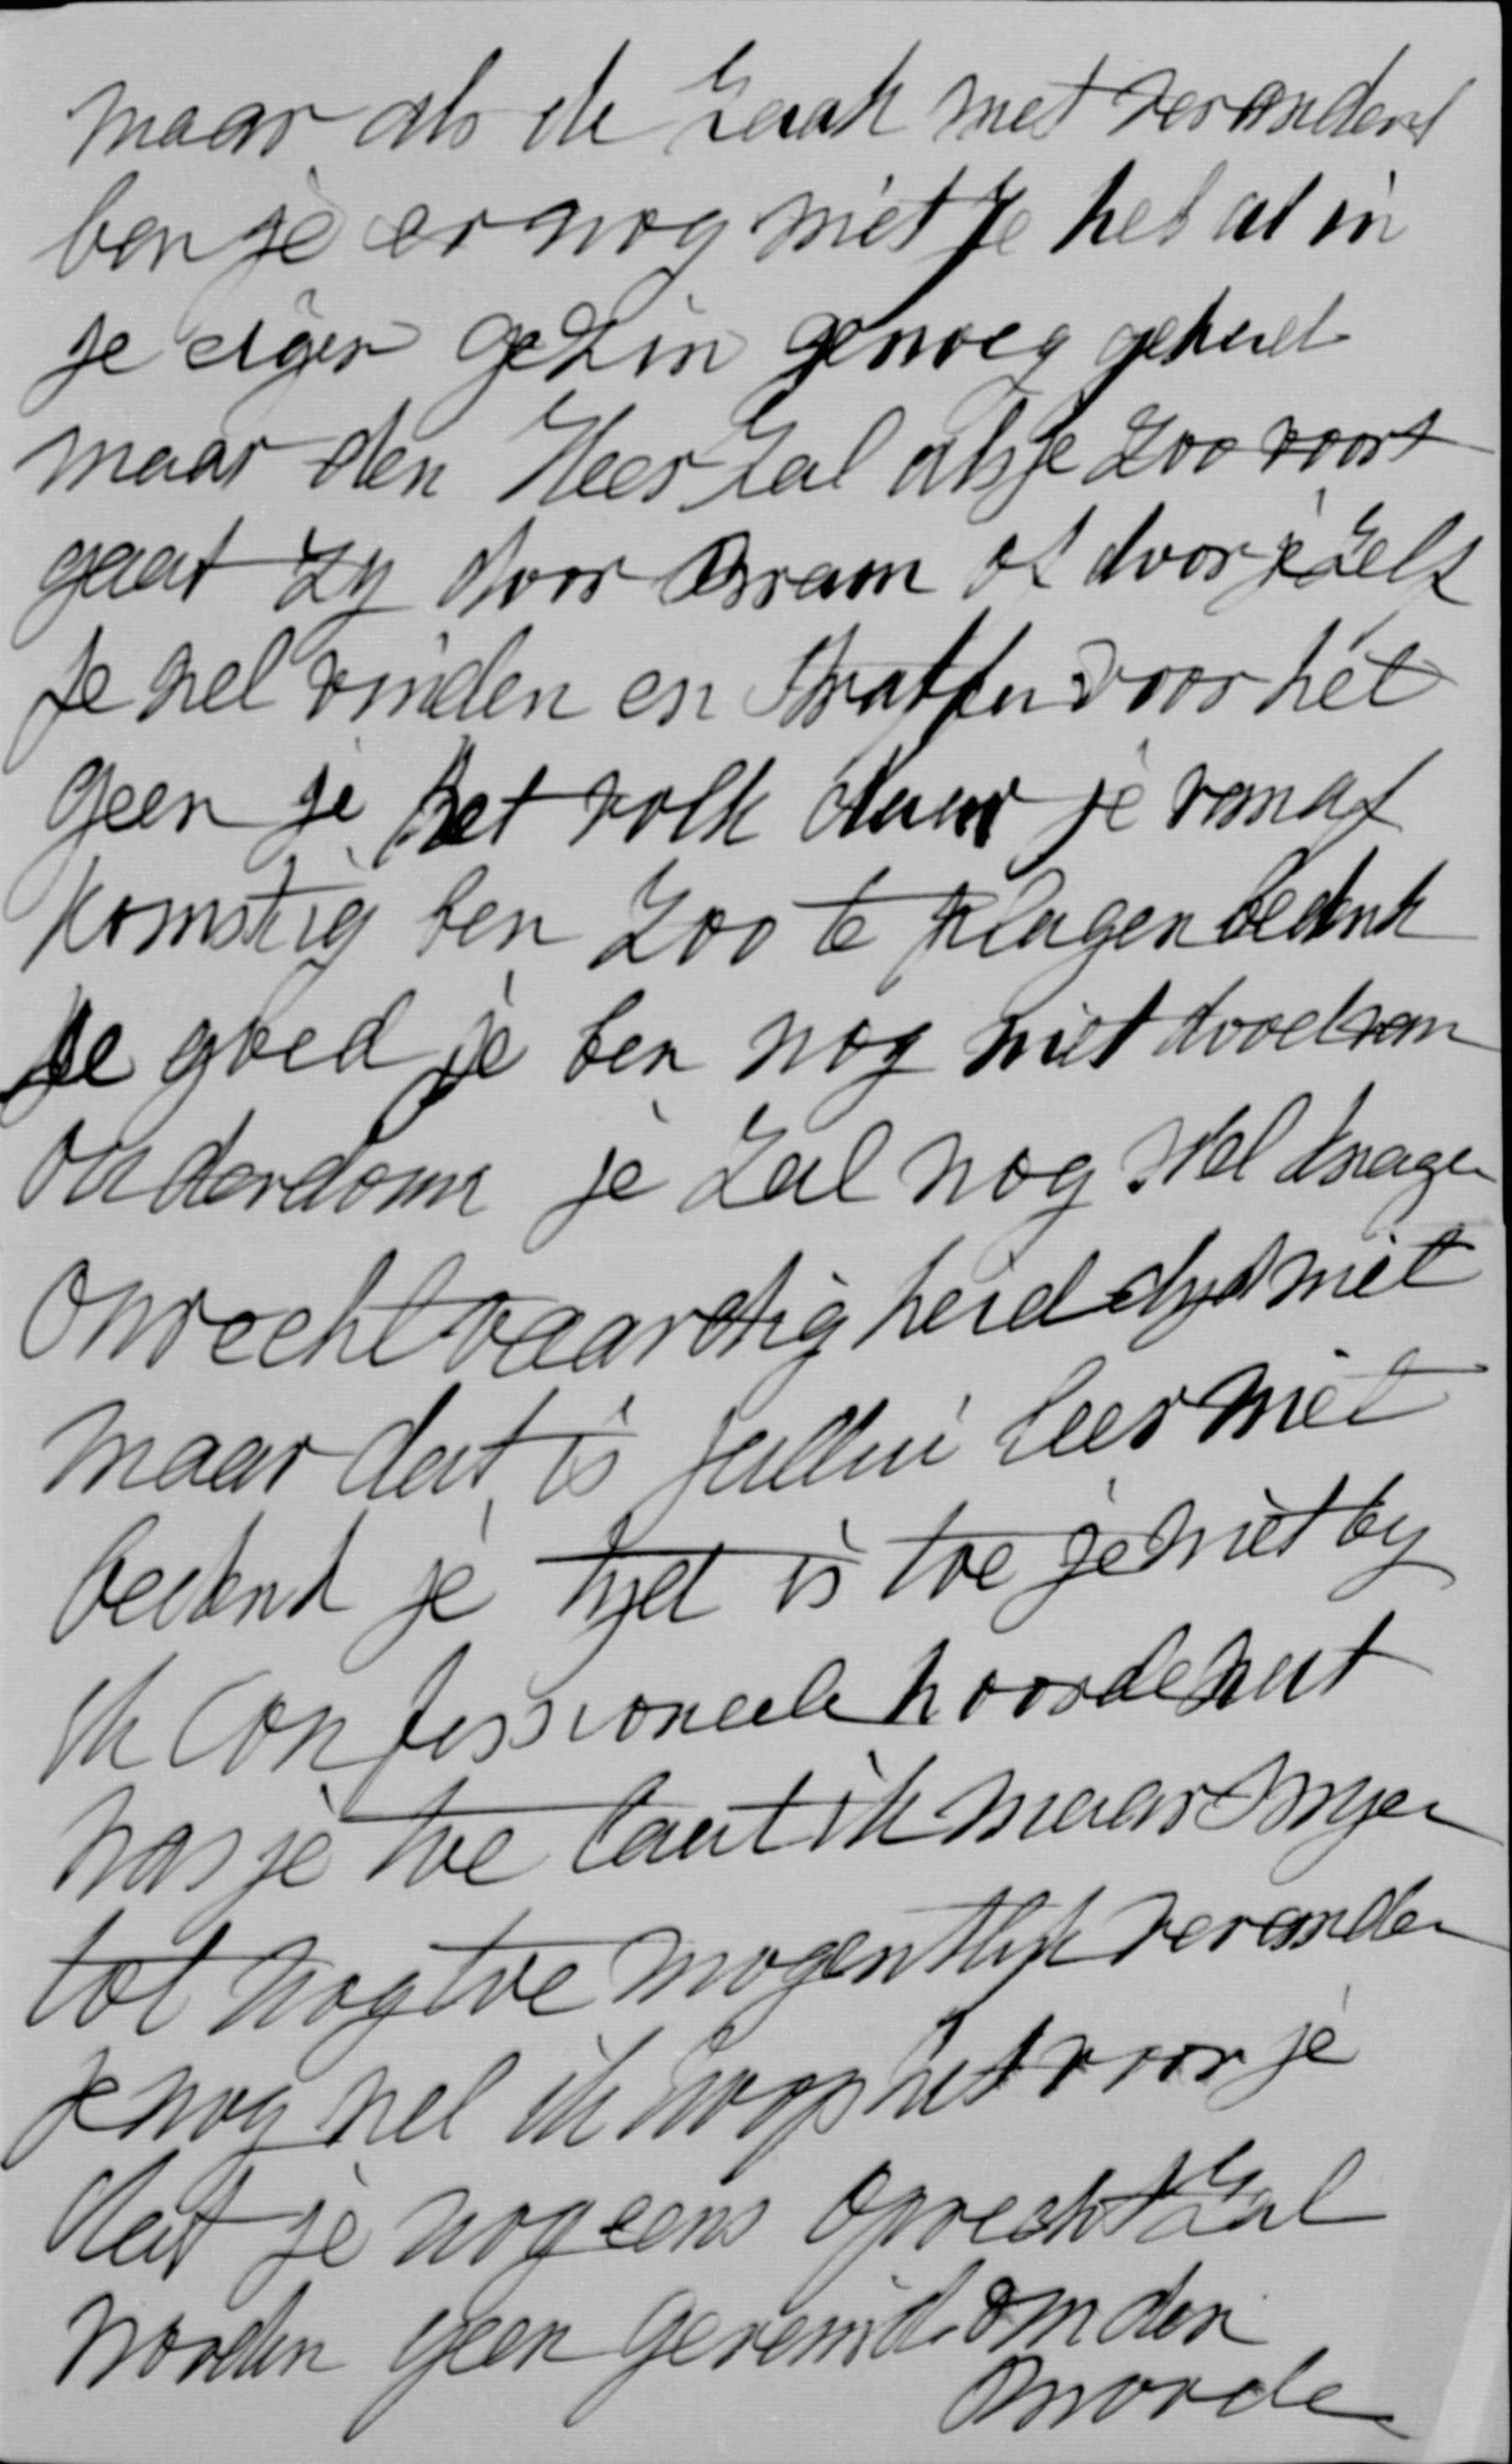 maar als de Zaak niet veranderd
ben je er nog niet Je heb al in
je eigen gezin genoeg gehad
maar den Heer Zal als je Zoo voort
gaat Zy door Bram of door je Zelf
Je wel vinden en Straffen voor het
geen je het volk daar je van af
komstig ben Zoo te plagen bedenk
Je goed je ben nog niet dood van
ouderdom je Zal nog Wel dragen
Onrechtvaardigheid dyd niet
maar dat is jullie leer niet
bedenk je tyd is toe je niet by
de Confessioneele hoorde wat
was je toe laat ik maar Swyen
tot nog toe mogentlyk verander
je nog wel ik hoop het voor je
dat je nog eens oprecht Zal
worden geen geveinsd om den
moorde